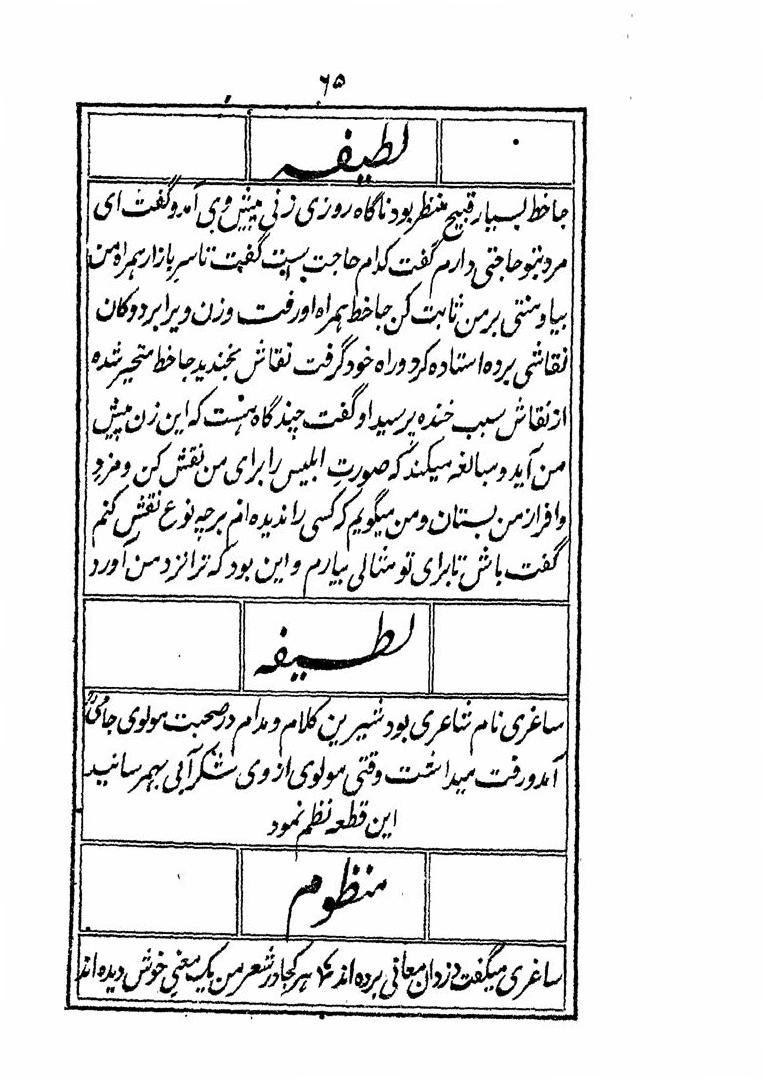 ۶۵
لطیفه
جاخط بسیار قبیح منظر بود ناگاه روزی زنی پیش وی آمد و گفت ای
مرد بتو حاجتی دارم گفت کدام حاجت ست گفت تا سر بازار همراه من
بیا و منتی بر من ثابت کن جاخط همراه او رفت و زن ویرا بر دوکان
نقاشی برده استاده کرد و راه خود گرفت نقاش بخندید جاخط متحیر شده
از نقاش سبب خنده پرسید او گفت چند گاه هست که این زن پیش
من آید و مبالغه میکند که صورتِ ابلیس را برای من نقش کن و مزدِ
وافر از من بستان و من میگویم که کسی را ندیده ام بر چه نوع نقش کنم
گفت باش تا برای تو مثالی بیارم و این بود که ترا نزد من آورد
لطیفه
ساغری نام شاعری بود شیرین کلام و مدام در صحبت مولوی جامی رح
آمد و رفت میداشت وقتی مولوی از وی شکرآبی بهم رسانید
این قطعه نظم نمود
منظوم
ساغری میگفت دزدان معانی برده اند ؎ هر کجا در شعر من یک معنیِ خوش دیده اند